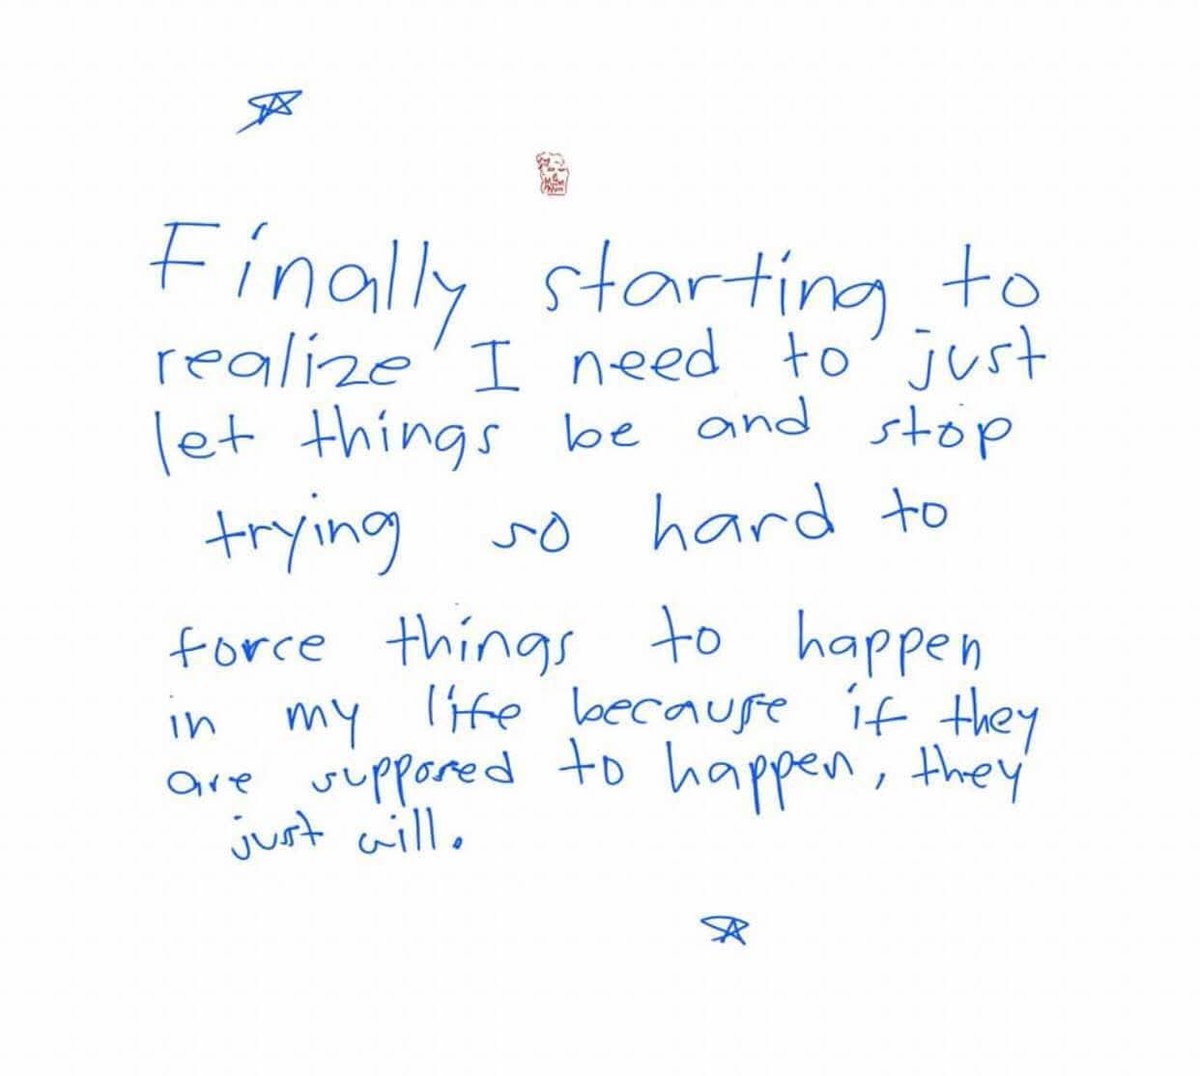 Finally starting to
realize I need to just
let things be and stop
trying so hard to
force things to happen
in my life because if they
are supposed to happen, they
just will.